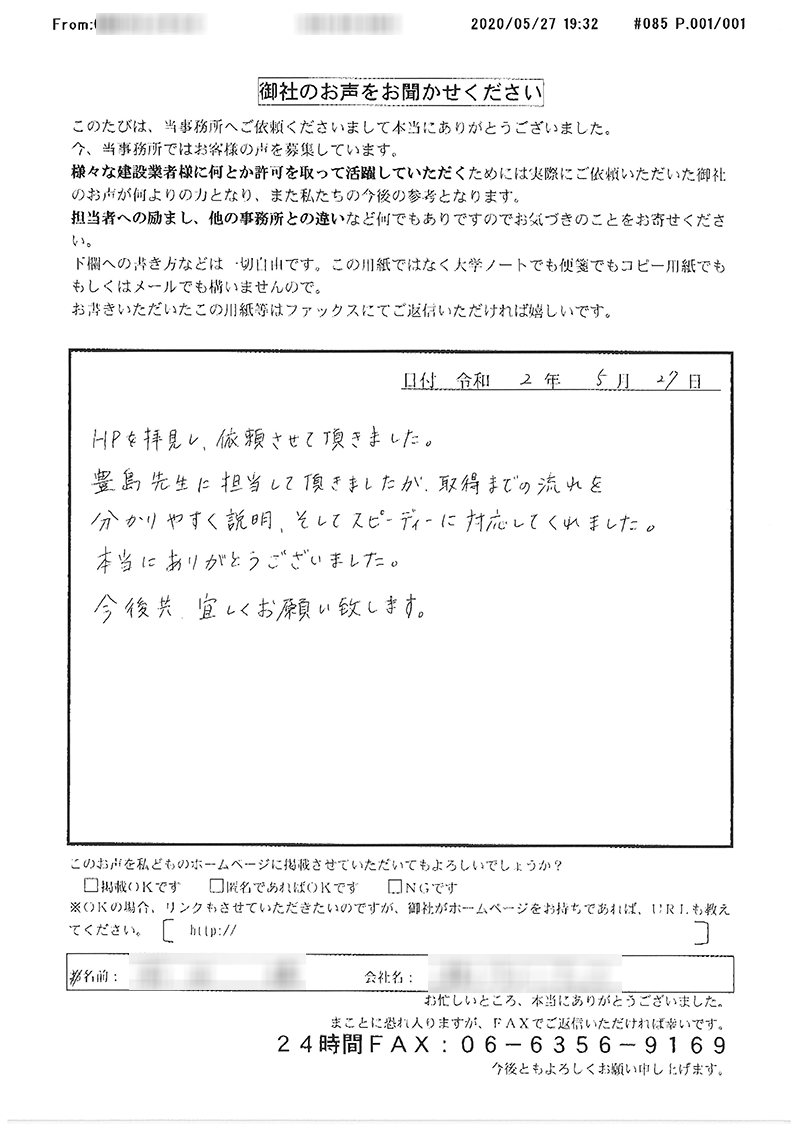 From:
2020/05/27 19:32 #085 P.001/001
御社のお声をお聞かせください
このたびは、当事務所へご依頼くださいまして本当にありがとうございました。
今、当事務所ではお客様の声を募集しています。
様々な建設業者様に何とか許可を取って活躍していただくためには実際にご依頼いただいた御社
のお声が何よりの力となり、また私たちの今後の参考となります。
担当者への励まし、他の事務所との違いなど何でもありですのでお気づきのことをお寄せくださ
い。
下欄への書き方などは一切自由です。この用紙ではなく大学ノートでも便箋でもコピー用紙でも
もしくはメールでも構いませんので。
お書きいただいたこの用紙等はファックスにてご返信いただければ嬉しいです。
日付 令和 2 年 5 月 27 日
HPを拝見し、依頼させて頂きました。
豊島先生に担当して頂きましたが、取得までの流れを
分かりやすく説明、そしてスピーディーに対応してくれました。
本当にありがとうございました。
今後共、宜しくお願い致します。
このお声を私どものホームページに掲載させていただいてもよろしいでしょうか？
□掲載OKです □匿名であればOKです □NGです
※OKの場合、リンクもさせていただきたいのですが、御社がホームページをお持ちであれば、URLも教え
てください。 [ http:// ]
お名前： 会社名：
お忙しいところ、本当にありがとうございました。
まことに恐れ入りますが、FAXでご返信いただければ幸いです。
24時間FAX：06-6356-9169
今後ともよろしくお願い申し上げます。